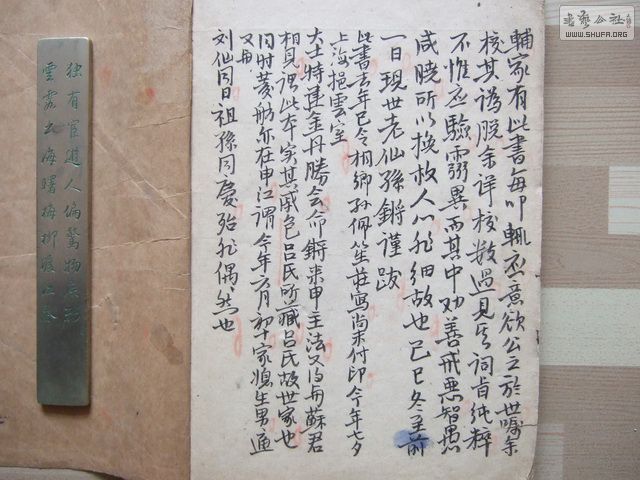 輔家有此書每叩輒應意欲公之於世囑余
核其譌脫余詳校數過見其詞旨純粹
不惟應驗靈異而其中劝善戒惡智愚
咸曉所以换救人心非细故也己巳冬至前
一日現世老仙孫鏘謹跋
此書去年已令桐鄉孙佩笙茊寫尚未付印今年七夕
上海挹雲室
大士特建金丹勝會命鏘来申主法又得与蘇君
相見谓此本实其戚邑吕氏所藏吕氏故世家也
同时菱舫亦在申江谓今年六月初十家媳生男適
又与
刘仙同日祖孫同慶殆非偶然也
独有宦遊人偏驚物候新
雲霞出海曙梅柳渡江春
書藝公社
WWW.SHUFA.ORG